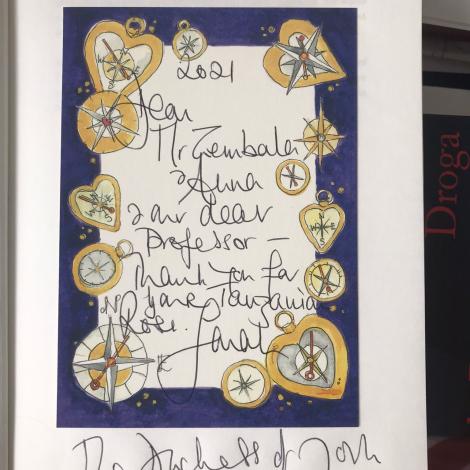 2021
Dear
Mr Zembala
& Anna
& our dear
Professor –
Thank you for
your Tanzania
Rose.
Sarah
The Duchess of York
Droga